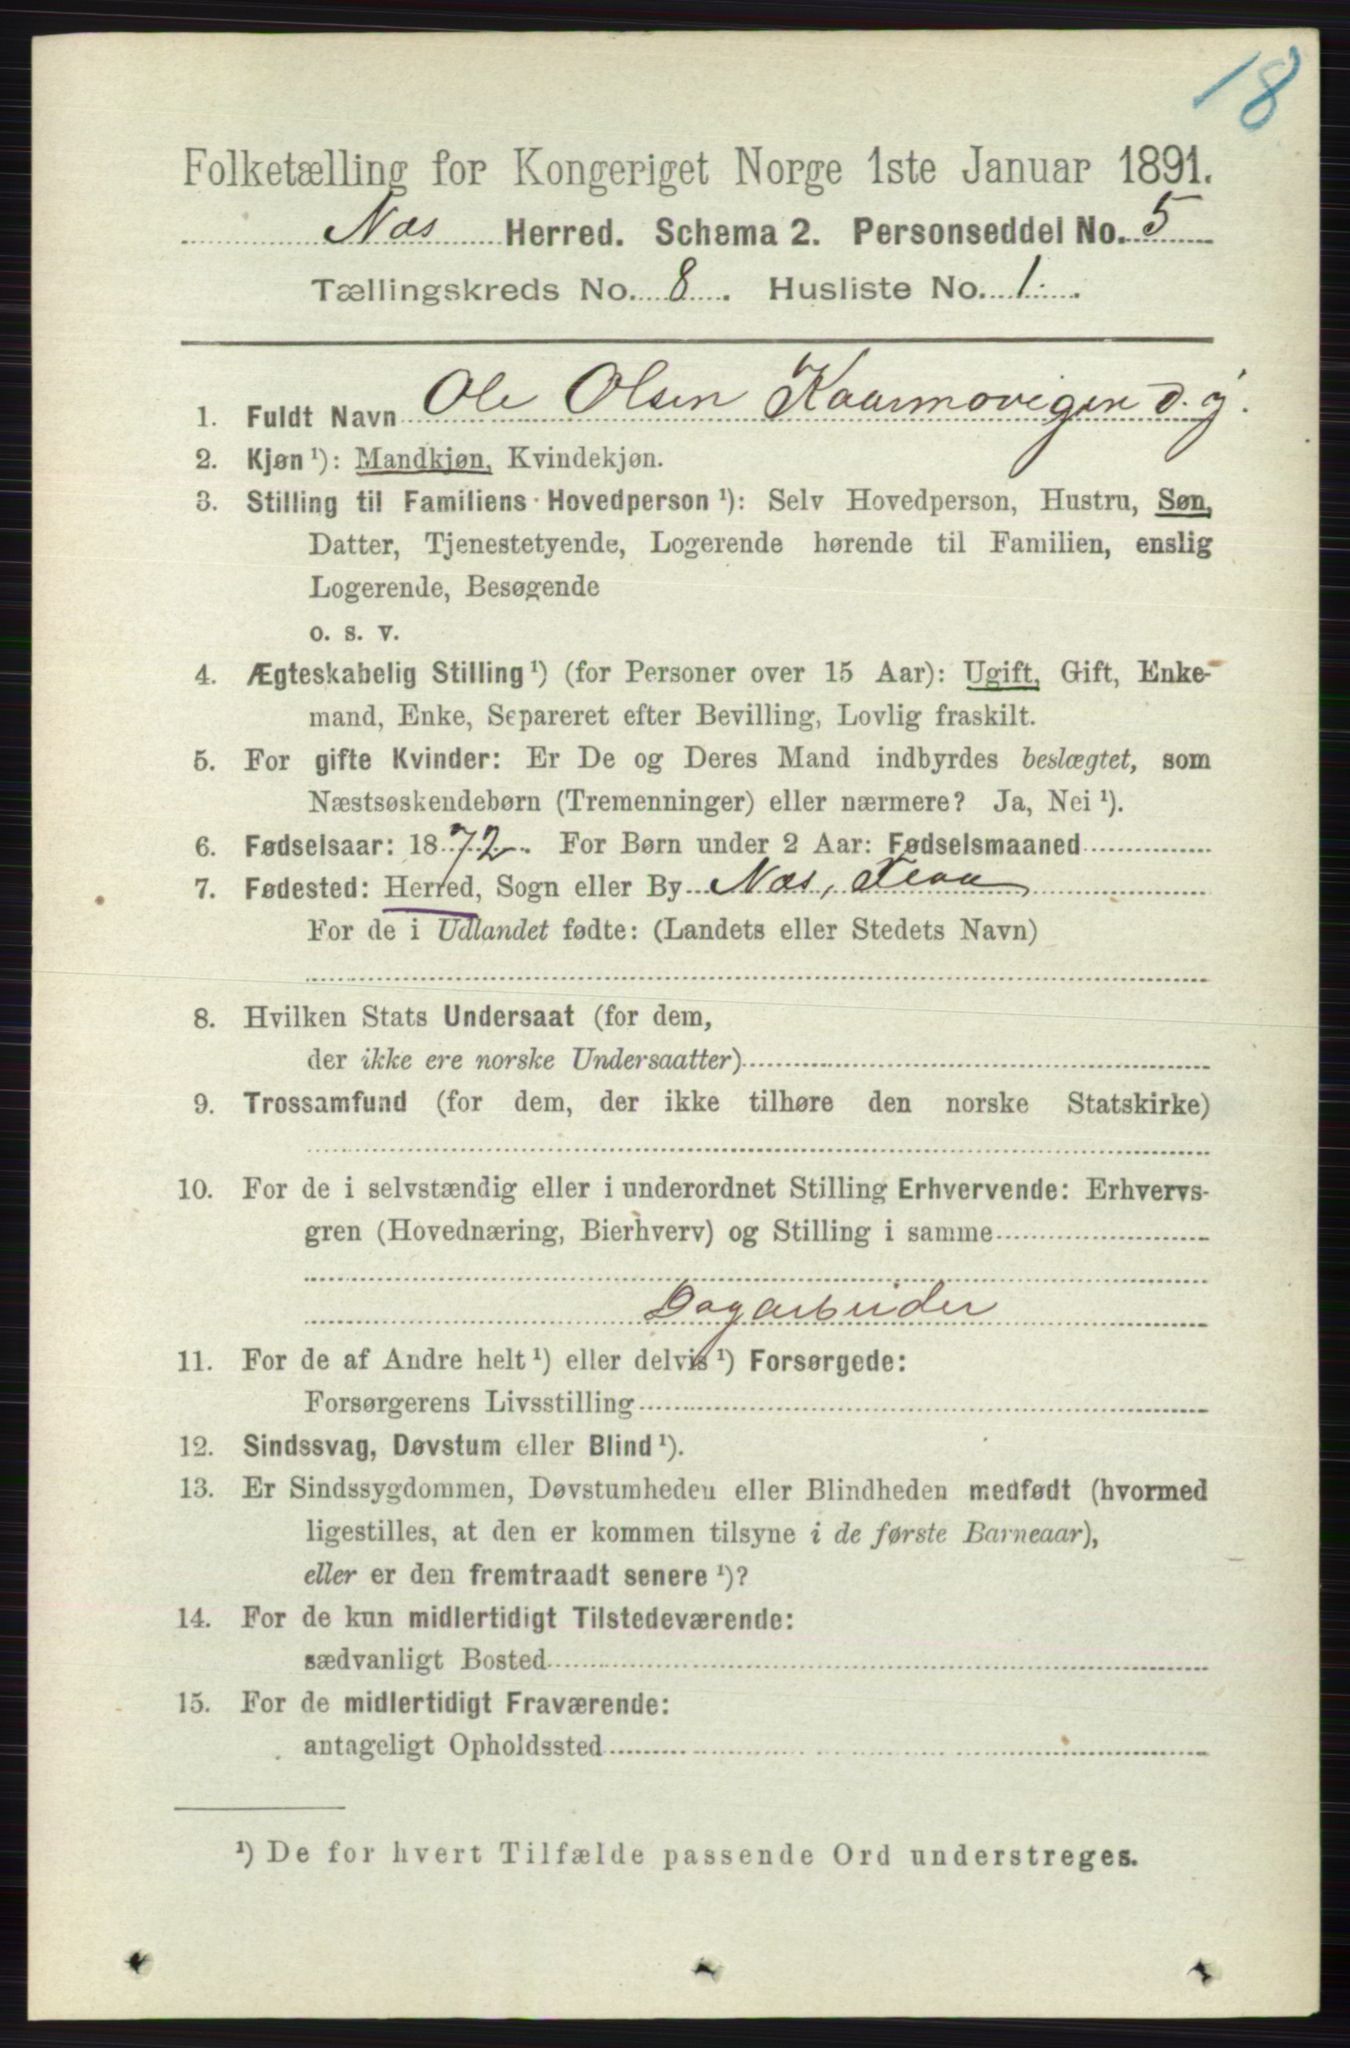 18
Folketælling for Kongeriget Norge 1ste Januar 1891.
Næs Herred. Schema 2. Personseddel No. 5
Tællingskreds No. 8. Husliste No. 1.
1. Fuldt Navn Ole Olsen Kaarmovigen d. y.
2. Kjøn ¹): Mandkjøn, Kvindekjøn.
3. Stilling til Familiens Hovedperson ¹): Selv Hovedperson, Hustru, Søn,
Datter, Tjenestetyende, Logerende hørende til Familien, enslig
Logerende, Besøgende
o. s. v.
4. Ægteskabelig Stilling ¹) (for Personer over 15 Aar): Ugift, Gift, Enke-
mand, Enke, Separeret efter Bevilling, Lovlig fraskilt.
5. For gifte Kvinder: Er De og Deres Mand indbyrdes beslægtet, som
Næstsøskendebørn (Tremenninger) eller nærmere? Ja, Nei ¹).
6. Fødselsaar: 1872. For Børn under 2 Aar: Fødselsmaaned
7. Fødested: Herred, Sogn eller By Næs, Flaa
For de i Udlandet fødte: (Landets eller Stedets Navn)
8. Hvilken Stats Undersaat (for dem,
der ikke ere norske Undersaatter)
9. Trossamfund (for dem, der ikke tilhøre den norske Statskirke)
10. For de i selvstændig eller i underordnet Stilling Erhvervende: Erhvervs-
gren (Hovednæring, Bierhverv) og Stilling i samme
Dagarbeider
11. For de af Andre helt ¹) eller delvis ¹) Forsørgede:
Forsørgerens Livsstilling
12. Sindssvag, Døvstum eller Blind ¹).
13. Er Sindssygdommen, Døvstumheden eller Blindheden medfødt (hvormed
ligestilles, at den er kommen tilsyne i de første Barneaar),
eller er den fremtraadt senere ¹)?
14. For de kun midlertidigt Tilstedeværende:
sædvanligt Bosted
15. For de midlertidigt Fraværende:
antageligt Opholdssted
¹) De for hvert Tilfælde passende Ord understreges.